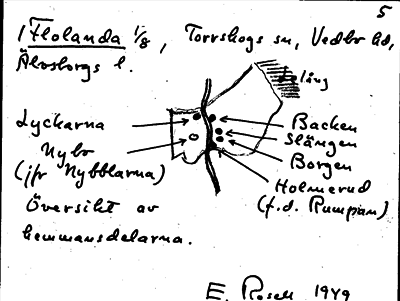 5
1 Flolanda 1/8, Torrskogs sn, Vedbo hd,
Älvsborgs l.
Leläng
Lyckarna
Nybo
(jfr Nybblarna)
Översikt av
hemmansdelarna.
Backen
Slängen
Borgen
Holmerud
(f.d. Rumpan)
E. Rosell 1949